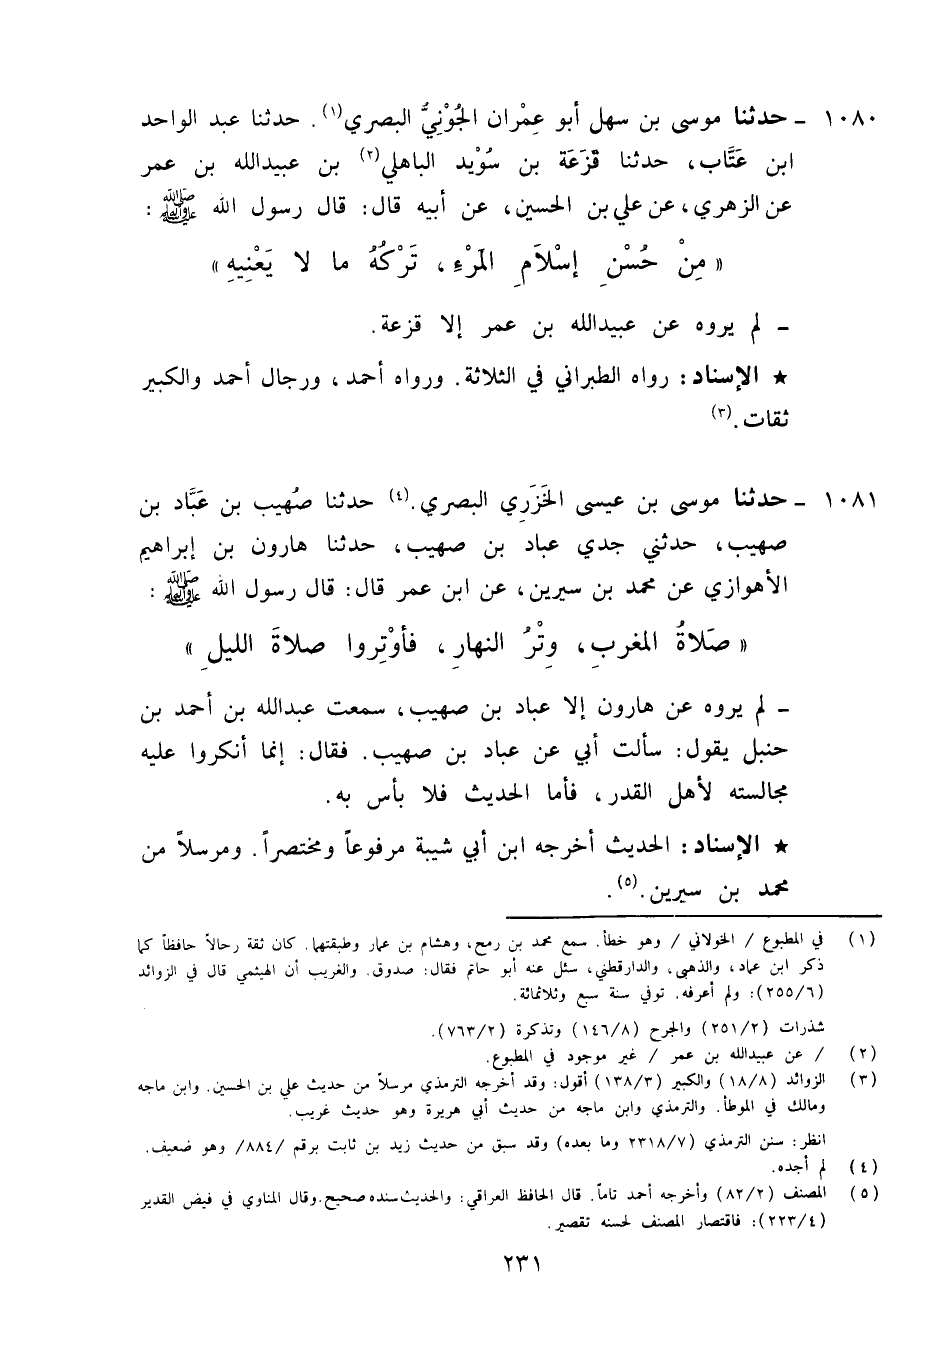 ١٠٨٠ - حدثنا موسى بن سهل أبو عِمْران الجُوْنِيُّ البصري(١). حدثنا عبد الواحد
ابن عَتَّاب، حدثنا قَزَعَة بن سُوَيْد الباهلي(٢) بن عبيدالله بن عمر
عن الزهري، عن علي بن الحسين، عن أبيه قال: قال رسول الله ﷺ :
« مِنْ حُسْنِ إسْلَامِ المَرْءِ، تَرْكُهُ ما لا يَعْنِيهِ »
- لم يروه عن عبيدالله بن عمر إلا قزعة.
★ الإسناد: رواه الطبراني في الثلاثة. ورواه أحمد، ورجال أحمد والكبير
ثقات.(٣)
١٠٨١ - حدثنا موسى بن عيسى الخَزَرِي البصري.(٤) حدثنا صُهيب بن عَبَّاد بن
صهيب، حدثني جدي عباد بن صهيب، حدثنا هارون بن إبراهيم
الأهوازي عن محمد بن سيرين، عن ابن عمر قال: قال رسول الله ﷺ :
« صَلاةُ المغربِ، وِتْرُ النهارِ، فأوْتِروا صلاةَ الليلِ »
- لم يروه عن هارون إلا عباد بن صهيب، سمعت عبدالله بن أحمد بن
حنبل يقول: سألت أبي عن عباد بن صهيب. فقال: إنما أنكروا عليه
مجالسته لأهل القدر، فأما الحديث فلا بأس به.
★ الإسناد: الحديث أخرجه ابن أبي شيبة مرفوعاً ومختصراً. ومرسلاً من
محمد بن سيرين.(٥).
(١) في المطبوع / الخولاني / وهو خطأ. سمع محمد بن رمح، وهشام بن عمار وطبقتهما. كان ثقة رحالاً حافظاً كما
ذكر ابن عماد، والذهبي، والدارقطني، سئل عنه أبو حاتم فقال: صدوق. والغريب أن الهيثمي قال في الزوائد
(٢٥٥/٦): ولم أعرفه. توفي سنة سبع وثلاثمائة.
شذرات (٢٥١/٢) والجرح (١٤٦/٨) وتذكرة (٧٦٣/٢).
(٢) / عن عبيدالله بن عمر / غير موجود في المطبوع.
(٣) الزوائد (١٨/٨) والكبير (١٣٨/٣) أقول: وقد أخرجه الترمذي مرسلاً من حديث علي بن الحسين. وابن ماجه
ومالك في الموطأ. والترمذي وابن ماجه من حديث أبي هريرة وهو حديث غريب.
انظر: سنن الترمذي (٢٣١٨/٧ وما بعده) وقد سبق من حديث زيد بن ثابت برقم /٨٨٤/ وهو ضعيف.
(٤) لم أجده.
(٥) المصنف (٨٢/٢) وأخرجه أحمد تاماً. قال الحافظ العراقي: والحديث سنده صحيح.وقال المناوي في فيض القدير
(٢٢٣/٤): فاقتصار المصنف لحسنه تقصير.
٢٣١